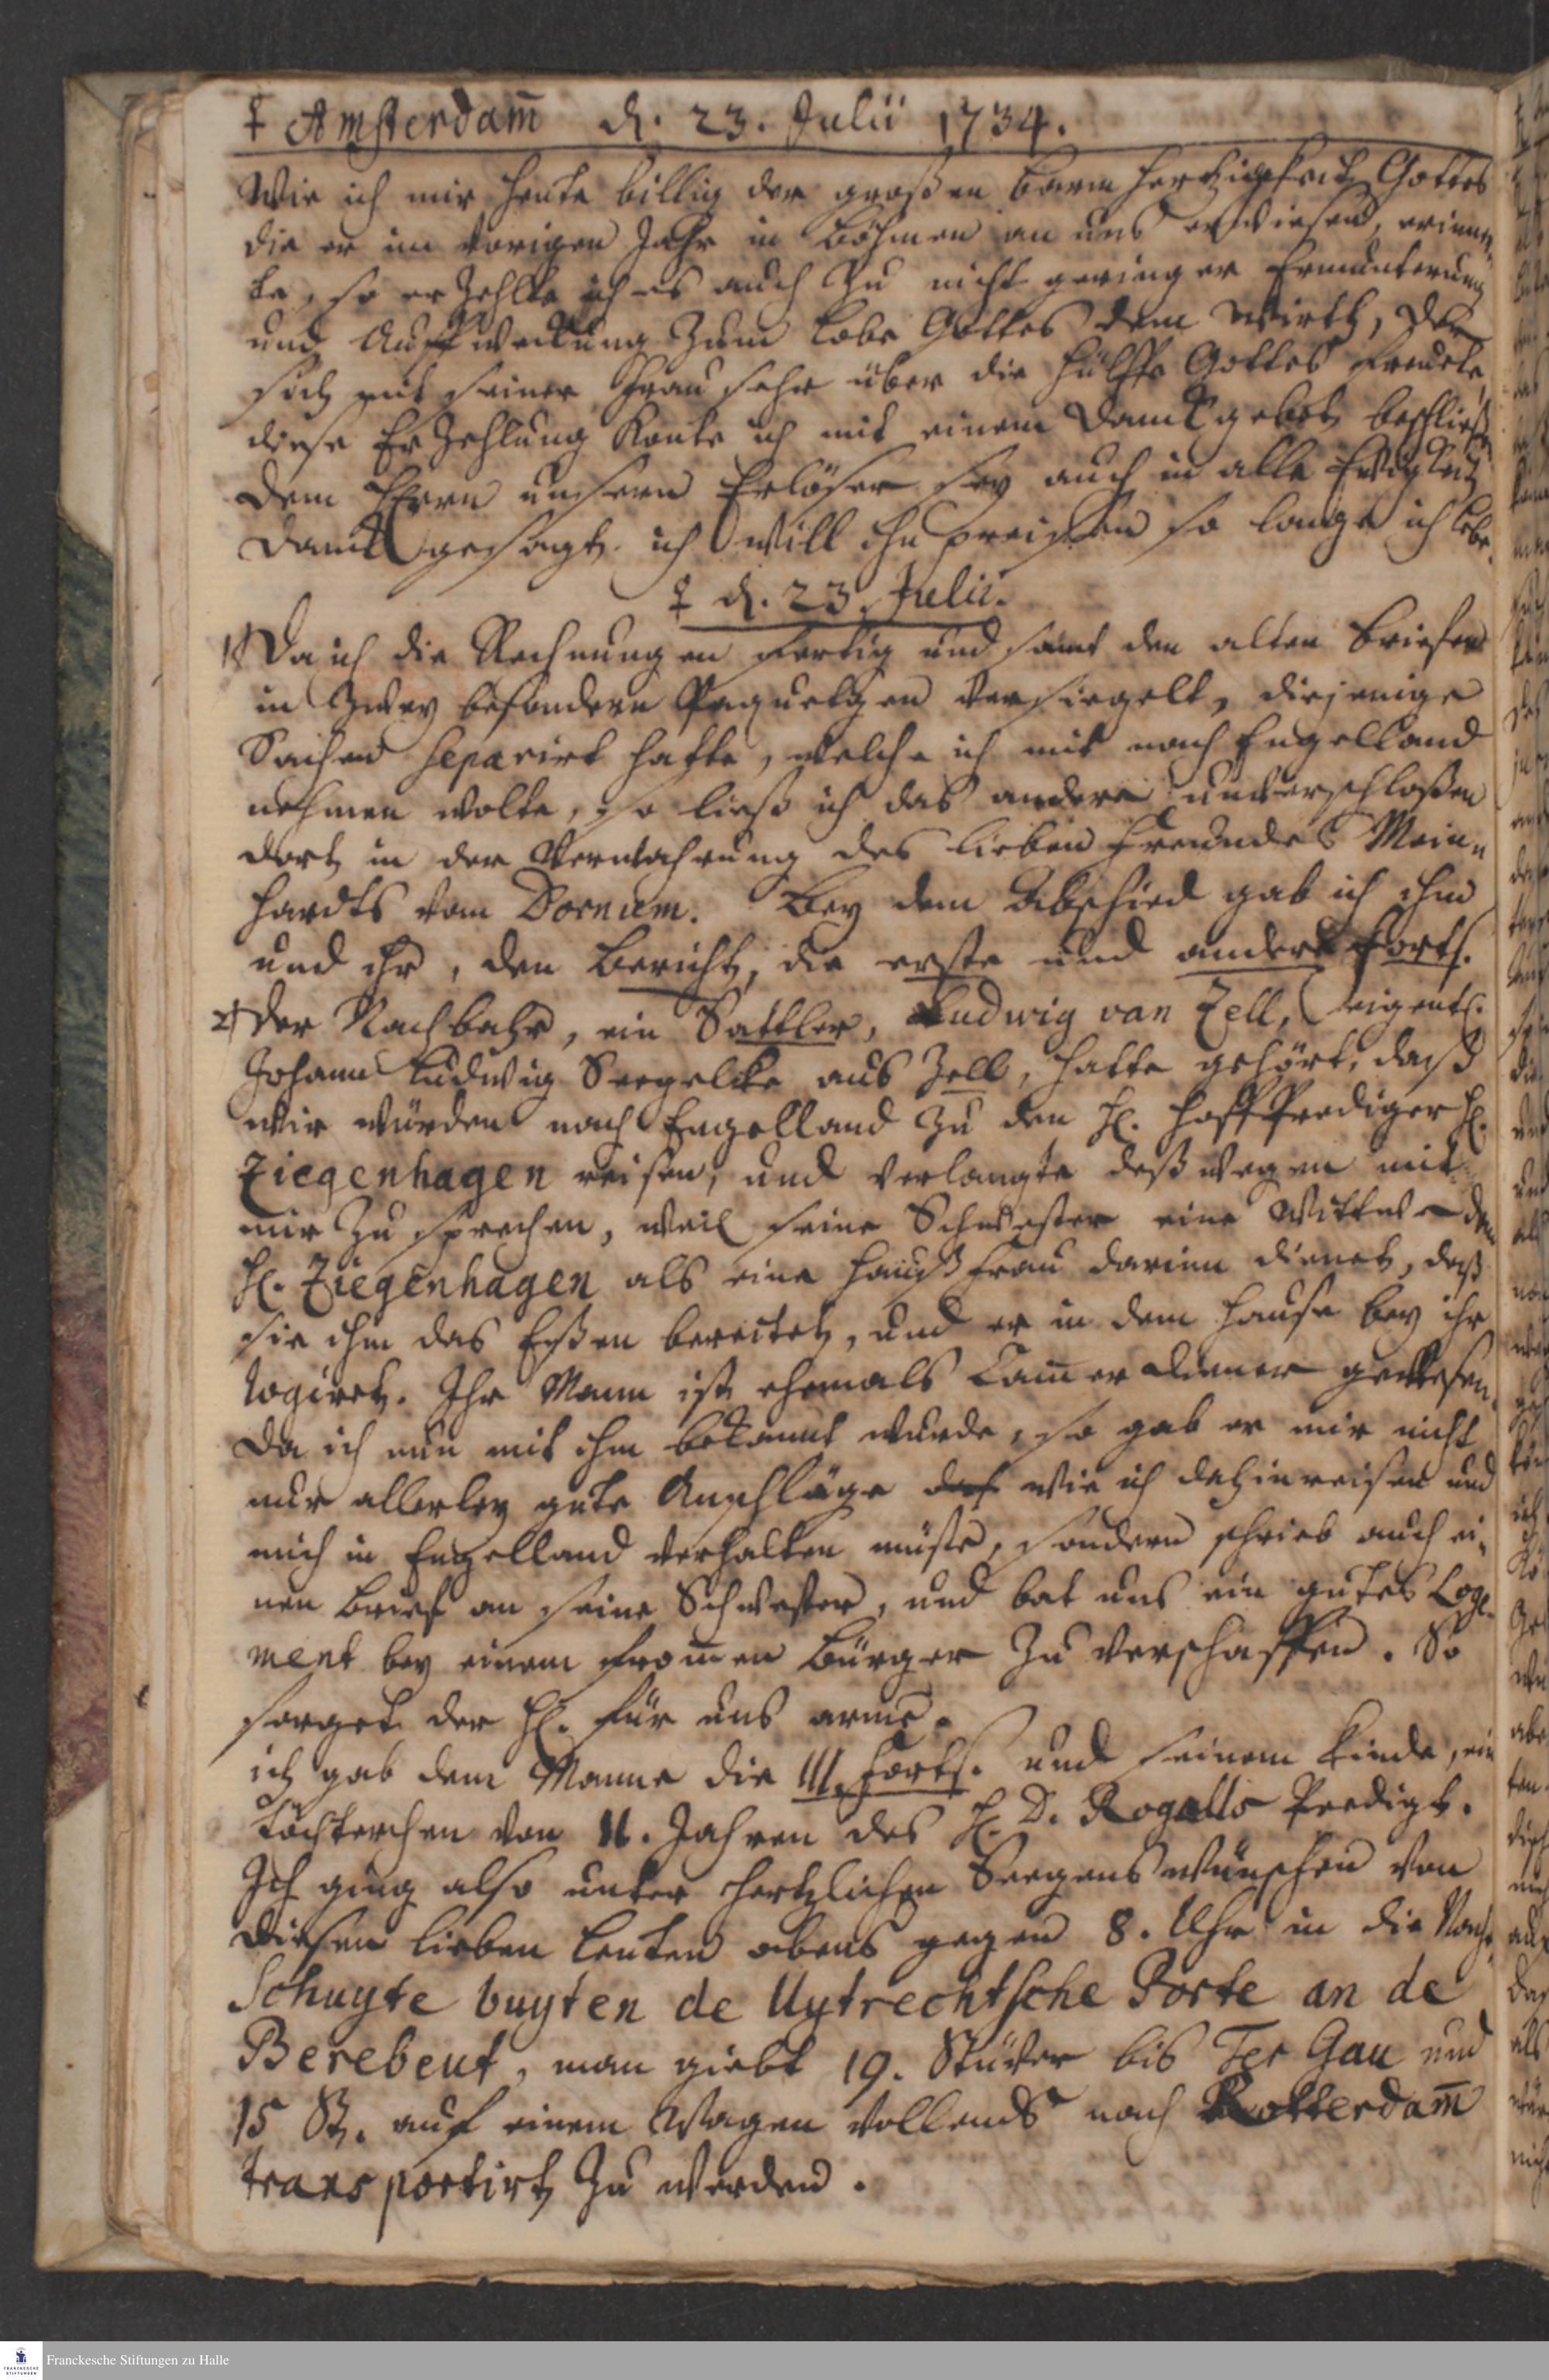 ♀ Amsterdam̄ d. 23. Julii 1734.
Wie ich mir heute billig der großen Barmhertzigkeit Gottes
die er im vorigen Jahr in Böhmen an uns erwiesen, erinner¬
te, so erzehlte ich es auch zu nicht geringer Ermunterung
und Auffweckung zum Lobe Gottes dem Wirth, der
sich mit seiner Frau sehr über die Hülffe Gottes freuete,
diese Erzehlung konte ich mit einem Danckgebet beschließen
dem HErrn unserm Erlöser sey auch in alle Ewigkeit
Danck gesagt. ich will ihn preisen so lange ich lebe.
♀ d. 23. Julii.
1) Da ich die Rechnungen fertig und samt den alten Briefen
in zwey besondere Paquetgen versiegelt, diejenige
Sachen separirt hatte, welche ich mit nach Engelland
nehmen wolte, so ließ ich das andere unverschloßen
dort in der Verwahrung des lieben Freundes Mein„
hardts vom Dornum. Bey dem Abschied gab ich ihm
und ihr, den Bericht, die erste und andere Forts.
2) Der Nachbahr, ein Sattler, Ludwig van Zell, eigentl.
Johann Ludwig Seegelcke aus Zell, hatte gehört, daß
wir würden nach Engelland zu den H. HoffPrediger H.
Ziegenhagen reisen, und verlangte deßwegen mit
mir zu sprechen, weil seine Schwester eine Wittwe dem
H. Ziegenhagen als eine Haußfrau darinn dienet, daß
sie ihm das Eßen bereitet, und er in dem Hause bey ihr
logiret. Ihr Mann ist ehemals Cam̄erdiener gewesen.
Da ich nun mit ihm bekannt wurde, so gab er mir nicht
nur allerley gute Anschläge wie ich dahinreisen und
mich in Engelland verhalten müste, sondern schrieb auch ei„
nen Brief an seine Schwester, und bat uns ein gutes Loge¬
ment bey einem from̄en Bürger zu verschaffen. So
sorget der H. für uns arme.
ich gab dem Manne die III. Forts. und seinem Kinde, ein
Töchterchen von 11. Jahren des H. D. Rogalls Predigt.
Ich ging also unter hertzlichen Seegenswünschen von
diesen lieben Leuten abens gegen 8. Uhr in die Nacht„
Schuyte buyten de Uytrechtsche Porte an de
Berebeut, man giebt 19. Stüver bis Ter Gau und
15 St. auf einem Wagen vollends nach Rotterdam̄
transportirt zu werden.
Franckesche Stiftungen zu Halle